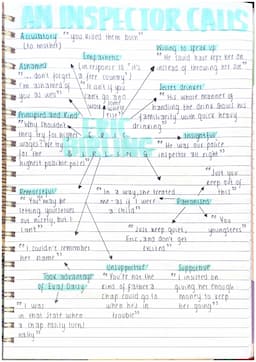 AN INSPECTOR CALLS
Accusatory "you killed them both"
(to mother)
Empathetic
Willing to speak up
"He could have kept her on
instead of throwing her out"
Ashamed
(in response to "it's
a free country")
"... don't forget
I'm ashamed of
you as well"
"It isn't if you
can't go and
work
Secret drinker
"his whole manner of
handling the drink shows his
familiarity with quick heavy
drinking"
Principled and Kind
"Why shouldn't
they try for higher
wages? We try
for the
highest possible prices"
ERIC
BIRLING
Insightful
"He was our police
inspector all right"
Remorseful
"You may be
letting yourselves
out nicely, but I
can't"
"In a way, she treated
me - as if I were
a child"
"Just you
keep out of
this"
Patronised
"Just keep quiet,
Eric, and don't get
excited"
"You
youngsters"
"I couldn't remember
her name"
Took advantage
of Eva/Daisy
"I was
in that state when
a chap easily turns
nasty"
Unsupportive
"You're not the
kind of father a
chap could go to
when he's in
trouble"
Supportive
"I insisted on
giving her enough
money to keep
her going"